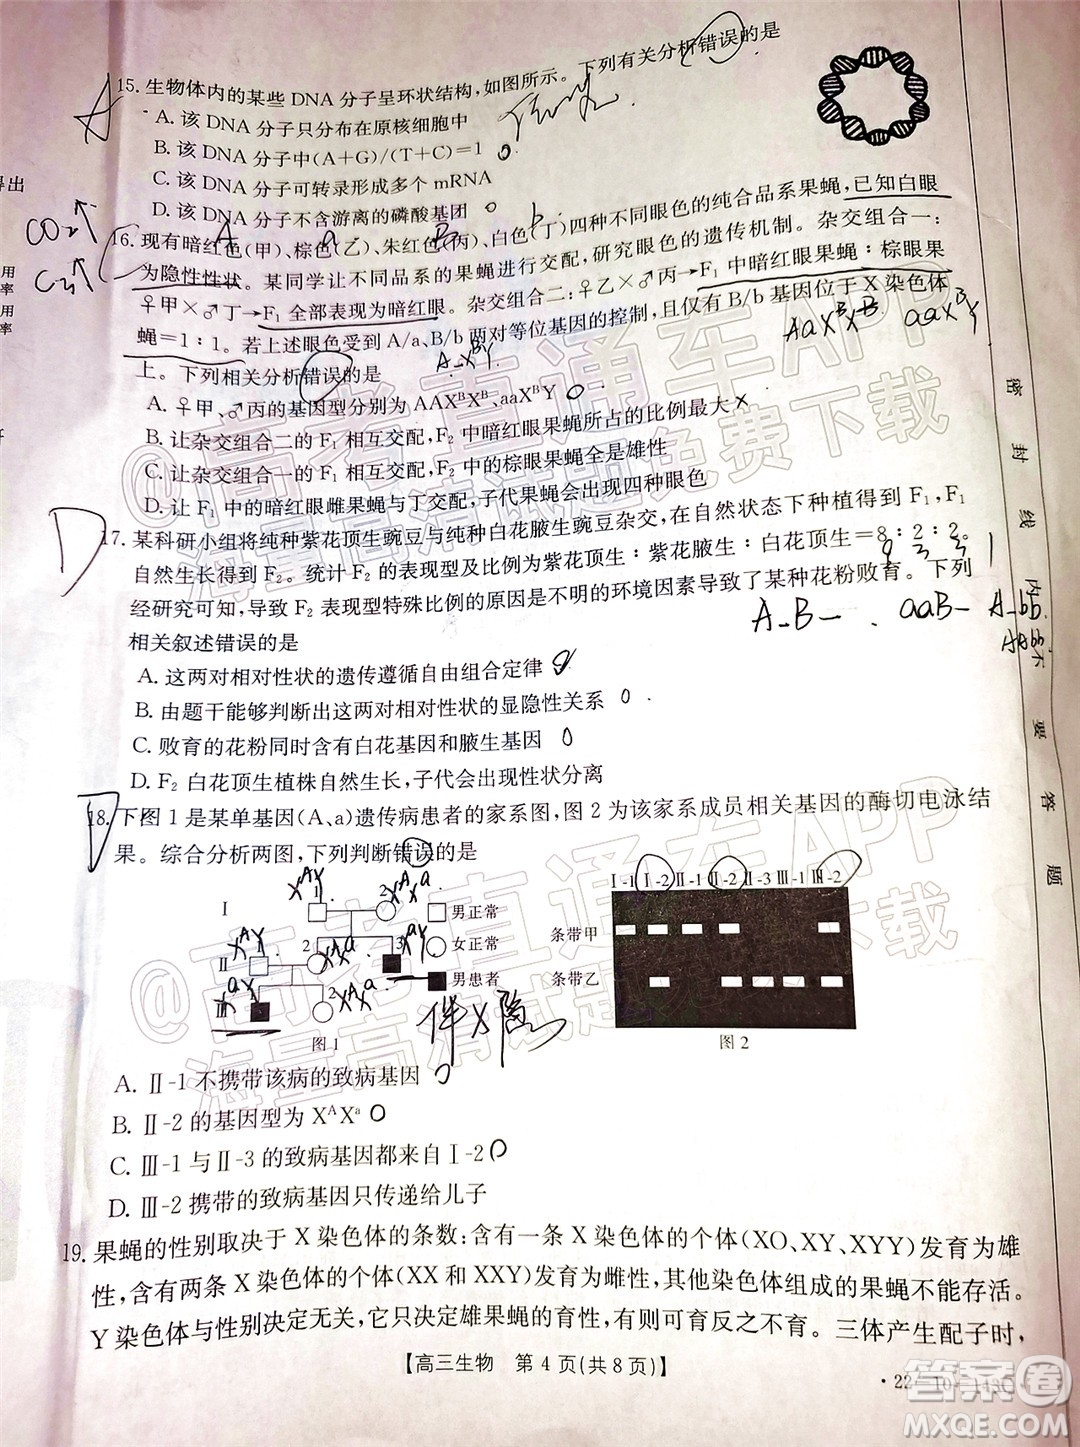 15. 生物体内的某些 DNA 分子呈环状结构,如图所示。下列有关分析错误的是
A. 该 DNA 分子只分布在原核细胞中
B. 该 DNA 分子中(A+G)/(T+C)=1
C. 该 DNA 分子可转录形成多个 mRNA
D. 该 DNA 分子不含游离的磷酸基团
16. 现有暗红色(甲)、棕色(乙)、朱红色(丙)、白色(丁)四种不同眼色的纯合品系果蝇,已知白眼
为隐性性状。某同学让不同品系的果蝇进行交配,研究眼色的遗传机制。杂交组合一:
♀甲×♂丁→F₁ 全部表现为暗红眼。杂交组合二:♀乙×♂丙→F₁ 中暗红眼果蝇∶棕眼果
蝇=1∶1。若上述眼色受到 A/a、B/b 两对等位基因的控制,且仅有 B/b 基因位于 X 染色体
上。下列相关分析错误的是
A. ♀甲、♂丙的基因型分别为 AAXᴮXᴮ、aaXᴮY
B. 让杂交组合二的 F₁ 相互交配,F₂ 中暗红眼果蝇所占的比例最大
C. 让杂交组合二的 F₁ 相互交配,F₂ 中的棕眼果蝇全是雄性
D. 让 F₁ 中的暗红眼雌果蝇与丁交配,子代果蝇会出现四种眼色
17. 某科研小组将纯种紫花顶生豌豆与纯种白花腋生豌豆杂交,在自然状态下种植得到 F₁,F₁
自然生长得到 F₂。统计 F₂ 的表现型及比例为紫花顶生∶紫花腋生∶白花顶生=8∶2∶2。
经研究可知,导致 F₂ 表现型特殊比例的原因是不明的环境因素导致了某种花粉败育。下列
相关叙述错误的是
A. 这两对相对性状的遗传遵循自由组合定律
B. 由题干能够判断出这两对相对性状的显隐性关系
C. 败育的花粉同时含有白花基因和腋生基因
D. F₂ 白花顶生植株自然生长,子代会出现性状分离
18. 下图 1 是某单基因(A、a)遗传病患者的家系图,图 2 为该家系成员相关基因的酶切电泳结
果。综合分析两图,下列判断错误的是
Ⅰ-1 Ⅰ-2 Ⅱ-1 Ⅱ-2 Ⅱ-3 Ⅲ-1 Ⅲ-2
条带甲
条带乙
男正常
女正常
男患者
图 1
图 2
A. Ⅱ-1 不携带该病的致病基因
B. Ⅱ-2 的基因型为 XᴬXᵃ
C. Ⅲ-1 与 Ⅱ-3 的致病基因都来自 Ⅰ-2
D. Ⅲ-2 携带的致病基因只传递给儿子
19. 果蝇的性别取决于 X 染色体的条数:含有一条 X 染色体的个体(XO、XY、XYY)发育为雄
性,含有两条 X 染色体的个体(XX 和 XXY)发育为雌性,其他染色体组成的果蝇不能存活。
Y 染色体与性别决定无关,它只决定雄果蝇的育性,有则可育反之不育。三体产生配子时,
【高三生物 第 4 页(共 8 页)】
密 封 线 内 不 要 答 题
答案圈
MXQE.COM
@高考直通车APP
海量高清试题免费下载